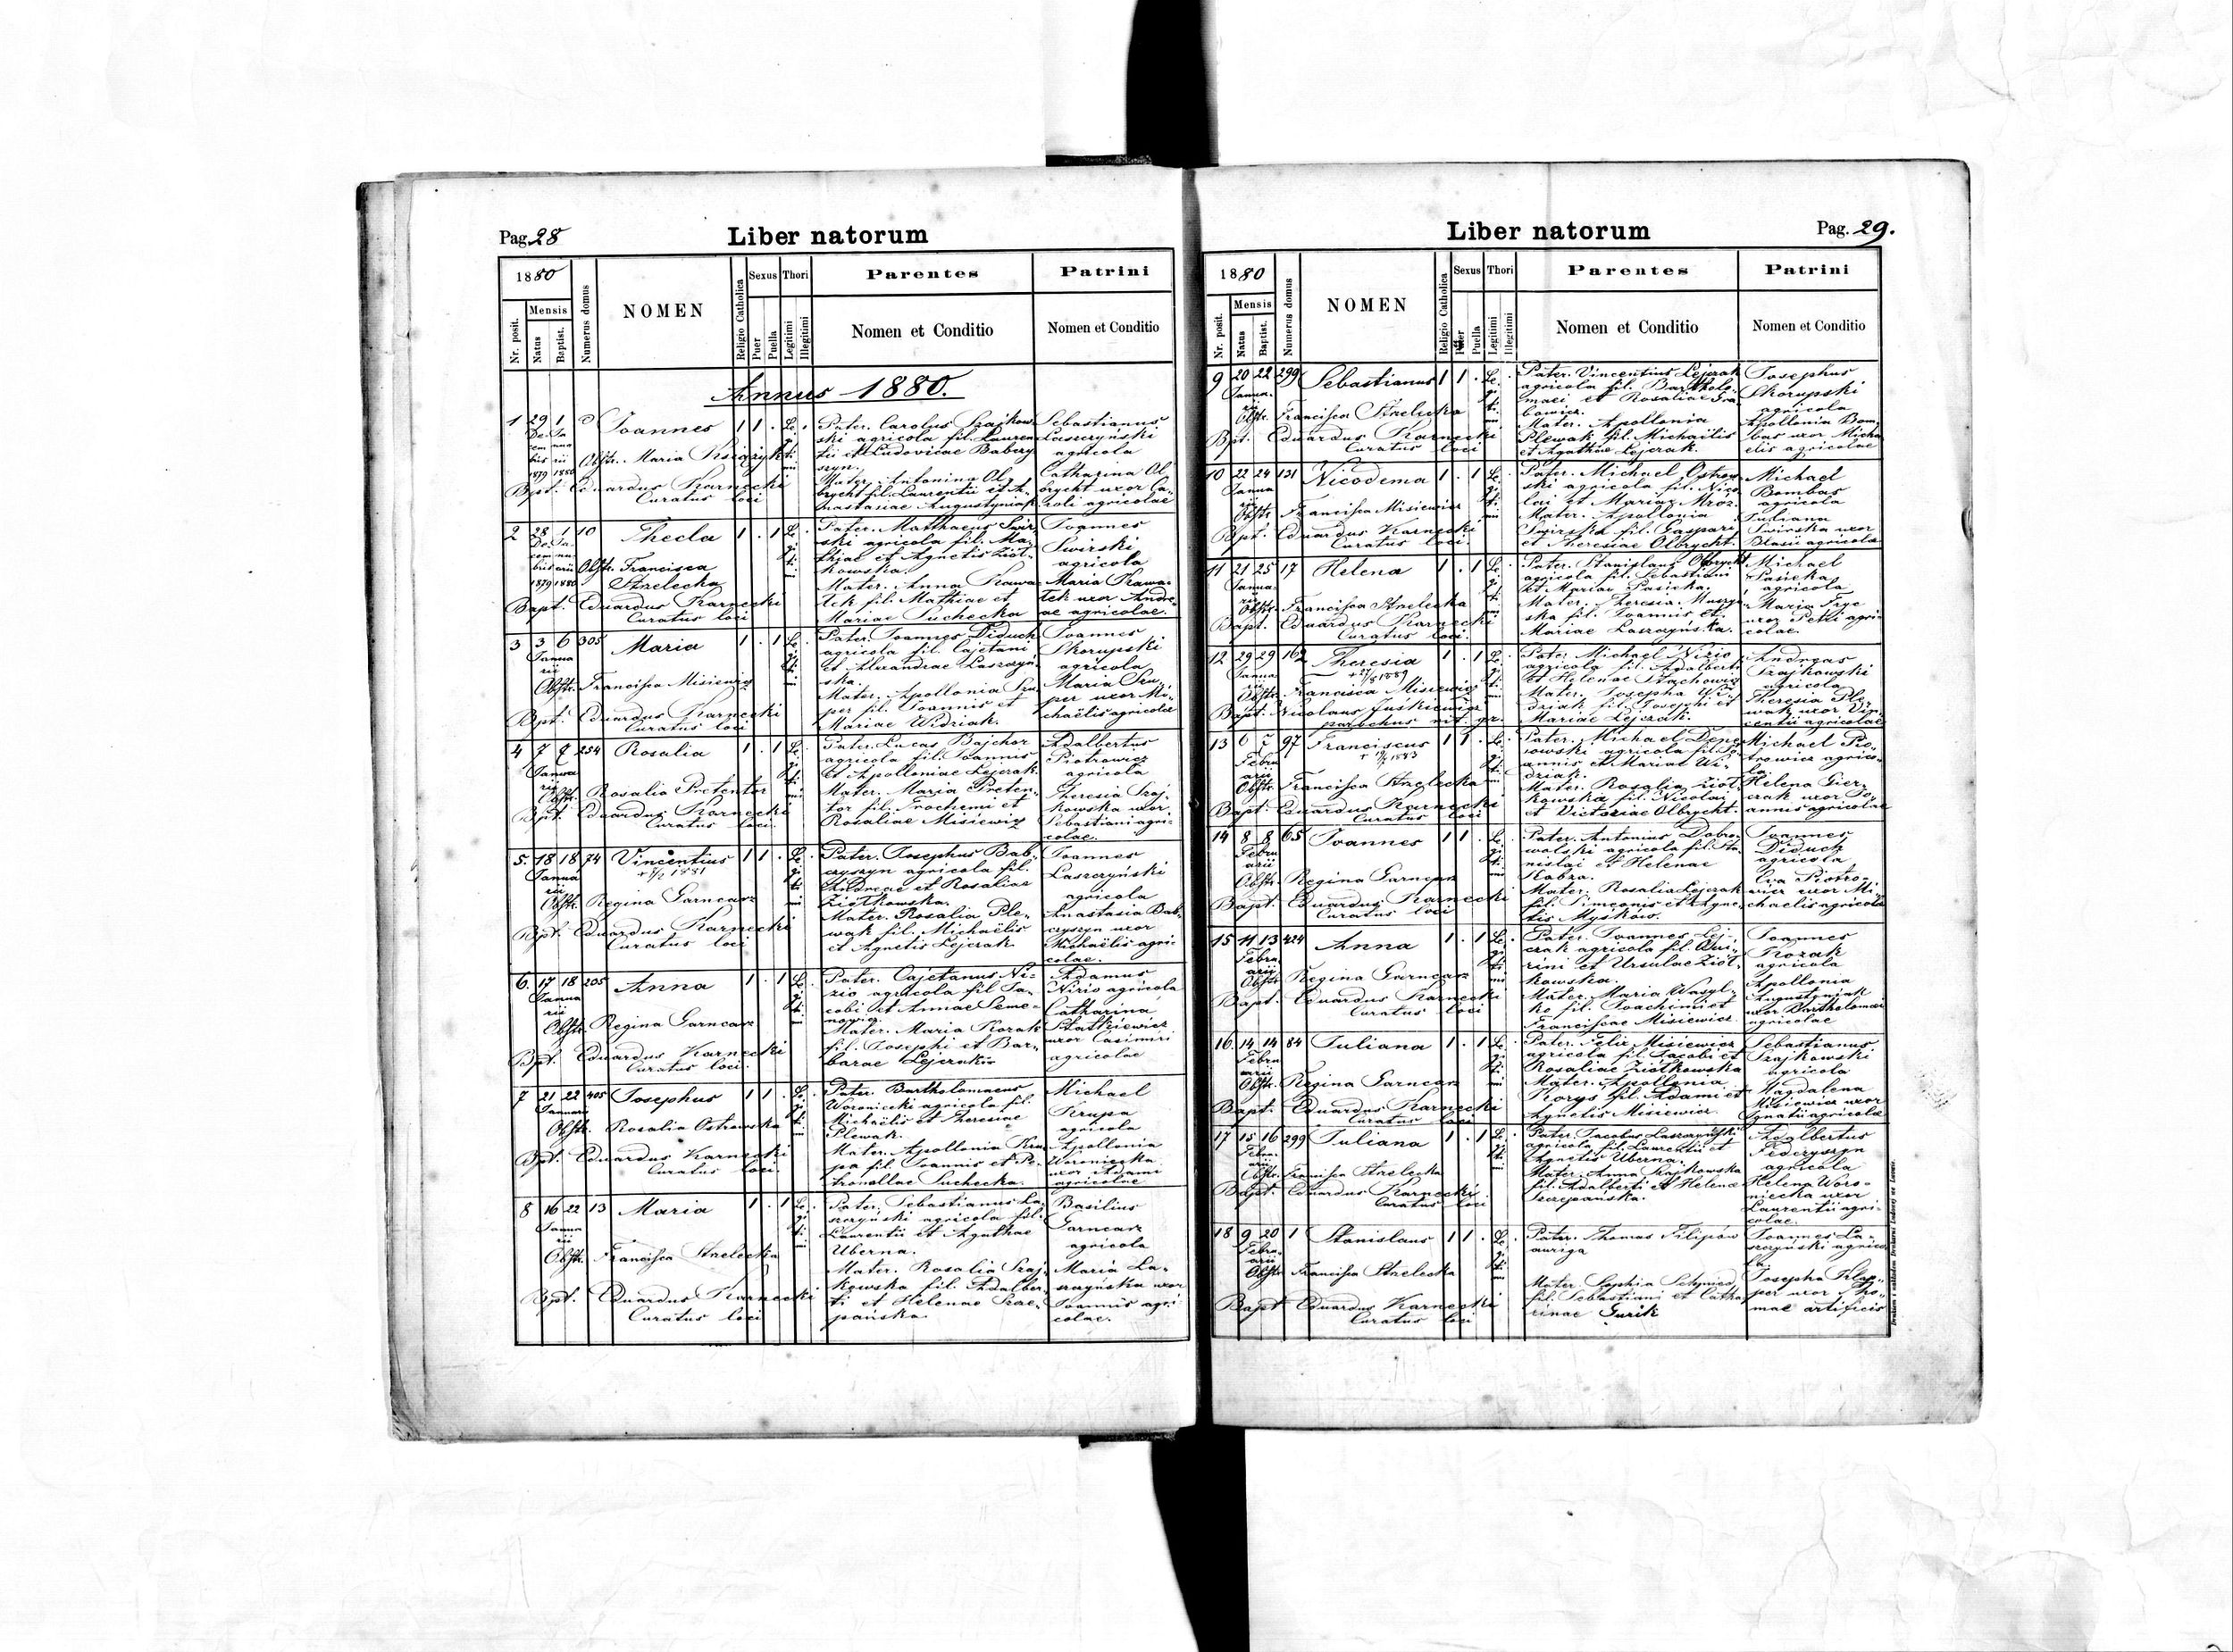 Pag. 28
Liber natorum
1880
Mensis
Nr. posit.
Natus
Baptist.
Numerus domus
NOMEN
Religio Catholica
Sexus
Puer
Puella
Thori
Legitimi
Illegitimi
Parentes
Nomen et Conditio
Patrini
Nomen et Conditio
Annus 1880.
1 29 1 Joannes 1 1 .
Decembris 1879 Januarii 1880
Obstr. Maria
Bpt. Eduardus Karnecki
Curatus loci
Pater. Carolus Szajkow
ski agricola fil. Lauren
tii et Ludovicae Babery
szyn.
Mater. Antonina Ol
brycht fil. Laurentii et A
nastasiae Augustyniak
Sebastianus
Laszczyński
agricola
Catharina Ol
brycht uxor Ca
roli agricolae
2 28 1 10 Thecla 1 . 1
Decembris 1879 Januarii 1880
Obstr. Francisca
Strelecka
Bapt. Eduardus Karnecki
Curatus loci
Pater. Matthaeus Swir
ski agricola fil. Ma
thiae et Agnetis Ziół
kowska.
Mater. Anna Krawa
tek fil. Mathiae et
Mariae Suchecka
Joannes
Swirski
agricola
Maria Krawa
tek uxor Andre
ae agricolae.
3 3 6 305 Maria 1 . 1
Januarii
Obstr. Francisca Misiewicz
Bpt. Eduardus Karnecki
Curatus loci
Pater. Joannes Diduch
agricola fil. Cajetani
et Alexandrae Laszczyń
ska.
Mater. Apollonia Szu
per fil. Joannis et
Mariae Widziak.
Joannes
Skorupski
agricola
Maria Szu
per uxor Mi
chaëlis agricolae
4 7 7 254 Rosalia 1 . 1
Januarii
Obstr. Rosalia Pretentor
Bpt. Eduardus Karnecki
Curatus loci.
Pater. Lucas Bajchor
agricola fil. Joannis
et Apolloniae Lejczak.
Mater. Maria Preten
tor fil. Trochemi et
Rosaliae Misiewicz
Adalbertus
Piotrowicz
agricola
Theresia Szaj
kowska uxor
Sebastiani agri
colae.
5. 18 18 74 Vincentius 1 1 .
1881
Januarii
Obstr. Regina Garncarz
Bpt. Eduardus Karnecki
Curatus loci
Pater. Josephus Bab
eryszyn agricola fil.
Andreae et Rosaliae
Ziółkowska.
Mater. Rosalia Ple
wak fil. Michaëlis
et Agnetis Lejczak
Joannes
Laszczyński
agricola
Anastasia Bab
eryszyn uxor
Michaëlis agri
colae.
6. 17 18 205 Anna 1 . 1
Januarii
Obstr. Regina Garncarz
Bpt. Eduardus Karnecki
Curatus loci.
Pater. Cajetanus Ni
zio agricola fil Ja
cobi et Annae Seme
nowicz.
Mater. Maria Kozak
fil. Josephi et Bar
barae Lejczak
Adamus
Nizio agricola
Catharina
Statkiewicz
uxor Casimiri
agricolae
7 21 22 405 Josephus 1 1 .
Januarii
Obstr. Rosalia Ostrowska
Bpt. Eduardus Karnecki
Curatus loci
Pater. Bartholomaeus
Woroniecki agricola fil.
Michaëlis et Theresiae
Plewak.
Mater. Apollonia Kru
pa fil. Joannis et Pe
tronellae Suchecka.
Michael
Krupa
agricola
Apollonia
Woroniecka
uxor Adami
agricolae
8 16 22 13 Maria 1 . 1
Januarii
Obstr. Francisca Strelecka
Bpt. Eduardus Karnecki
Curatus loci
Pater. Sebastianus La
szczyński agricola fil.
Laurentii et Agathae
Uberna.
Mater. Rosalia Szaj
kowska fil. Adalber
ti et Helenae Szcze
pańska.
Basilius
Garncarz
agricola
Maria La
szczyńska uxor
Joannis agri
colae.
Liber natorum
Pag. 29.
1880
Mensis
Nr. posit.
Natus
Baptist.
Numerus domus
NOMEN
Religio Catholica
Sexus
Puer
Puella
Thori
Legitimi
Illegitimi
Parentes
Nomen et Conditio
Patrini
Nomen et Conditio
9 20 22 299 Sebastianus 1 1 .
Januarii
Obstr. Francisca Strelecka
Bpt. Eduardus Karnecki
Curatus loci
Pater. Vincentius Lejczak
agricola fil. Bartholo
maei et Rosaliae Gra
bowicz.
Mater. Apollonia
Plewak fil. Michaëlis
et Agathae Lejczak.
Josephus
Skorupski
agricola
Apollonia Bom
bas uxor Micha
elis agricolae
10 22 24 131 Nicodema 1 . 1
Januarii
Obstr. Francisca Misiewicz
Bpt. Eduardus Karnecki
Curatus loci.
Pater. Michael Ostrow
ski agricola fil. Nico
lai et Mariae Mróz.
Mater. Apollonia
Swirska fil. Gaspari
et Theresiae Olbrycht.
Michael
Bombas
agricola
Juliana
Swirska uxor
Blasii agricolae
11 21 25 17 Helena 1 . 1
Januarii
Obstr. Francisca Strelecka
Bapt. Eduardus Karnecki
Curatus loci.
Pater. Stanislaus Olbrycht
agricola fil. Sebastiani
et Mariae Pasicka.
Mater. Theresia
ska fil. Joannis et
Mariae Laszczyńska.
Michael
Pasicka
agricola
Maria Fryc
uxor Petri agri
colae.
12 29 29 162 Theresia 1 . 1
1889
Januarii
Obstr. Francisca Misiewicz
Bapt. Nicolaus Juśkiewicz
parochus rit. gr.
Pater. Michael Nizio
agricola fil. Adalberti
et Helenae Stachowicz
Mater. Josepha Wi
dziak fil. Josephi et
Mariae Lejczak.
Andreas
Szajkowski
agricola
Theresia Ple
wak uxor Vin
centii agricolae
13 6 7 97 Franciscus 1 1 .
1883
Februarii
Obstr. Francisca Strelecka
Bapt. Eduardus Karnecki
Curatus loci
Pater. Michael
sowski agricola fil. Jo
annis et Mariae Wi
dziak.
Mater. Rosalia Ziół
kowska fil. Nicolai
et Victoriae Olbrycht.
Michael Pio
trowicz agrico
la
Helena Gier
czak uxor Jo
annis agricolae
14 8 8 65 Joannes 1 1 .
Februarii
Obstr. Regina Garncarz
Bapt. Eduardus Karnecki
Curatus loci
Pater. Antonius Dobro
walski agricola fil. Sta
nislai et Helenae
Kobza.
Mater. Rosalia Lejczak
fil. Simeonis et Agne
tis Myśków.
Joannes
Diduch
agricola
Eva Piotro
wicz uxor Mi
chaelis agricolae
15 11 13 424 Anna 1 . 1
Februarii
Obstr. Regina Garncarz
Bapt. Eduardus Karnecki
Curatus loci
Pater. Joannes Lej
czak agricola fil. Qui
rini et Ursulae Ziół
kowska.
Mater. Maria Wasyl
ko fil. Joachimi et
Franciscae Misiewicz
Joannes
Kozak
agricola
Apollonia
Augustyniak
uxor Bartholomaei
agricolae
16. 14 14 84 Juliana 1 . 1
Februarii
Obstr. Regina Garncarz
Bapt. Eduardus Karnecki
Curatus loci
Pater. Felix Misiewicz
agricola fil. Jacobi et
Rosaliae Ziółkowska
Mater. Apollonia
Korys fil. Adami et
Agnetis Misiewicz.
Sebastianus
Szajkowski
agricola
Magdalena
Misiewicz uxor
Ignatii agricolae
17 15 16 299 Juliana 1 . 1
Februarii
Obstr. Francisca Strelecka
Bapt. Eduardus Karnecki
Curatus loci
Pater. Jacobus Laszczyński
agricola fil. Laurentii et
Agnetis Uberna.
Mater. Anna Szajkowska
fil. Adalberti et Helenae
Szczepańska.
Adalbertus
Federyszyn
agricola
Helena Woro
niecka uxor
Laurentii agri
colae.
18 9 20 1 Stanislaus 1 1 .
Februarii
Obstr. Francisca Strelecka
Bapt. Eduardus Karnecki
Curatus loci
Pater. Thomas Filipów
auriga
Mater. Sophia
fil. Sebastiani et Catha
rinae Gurik
Joannes La
szczyński agrico
la
Josepha
per uxor Tho
mae artificis